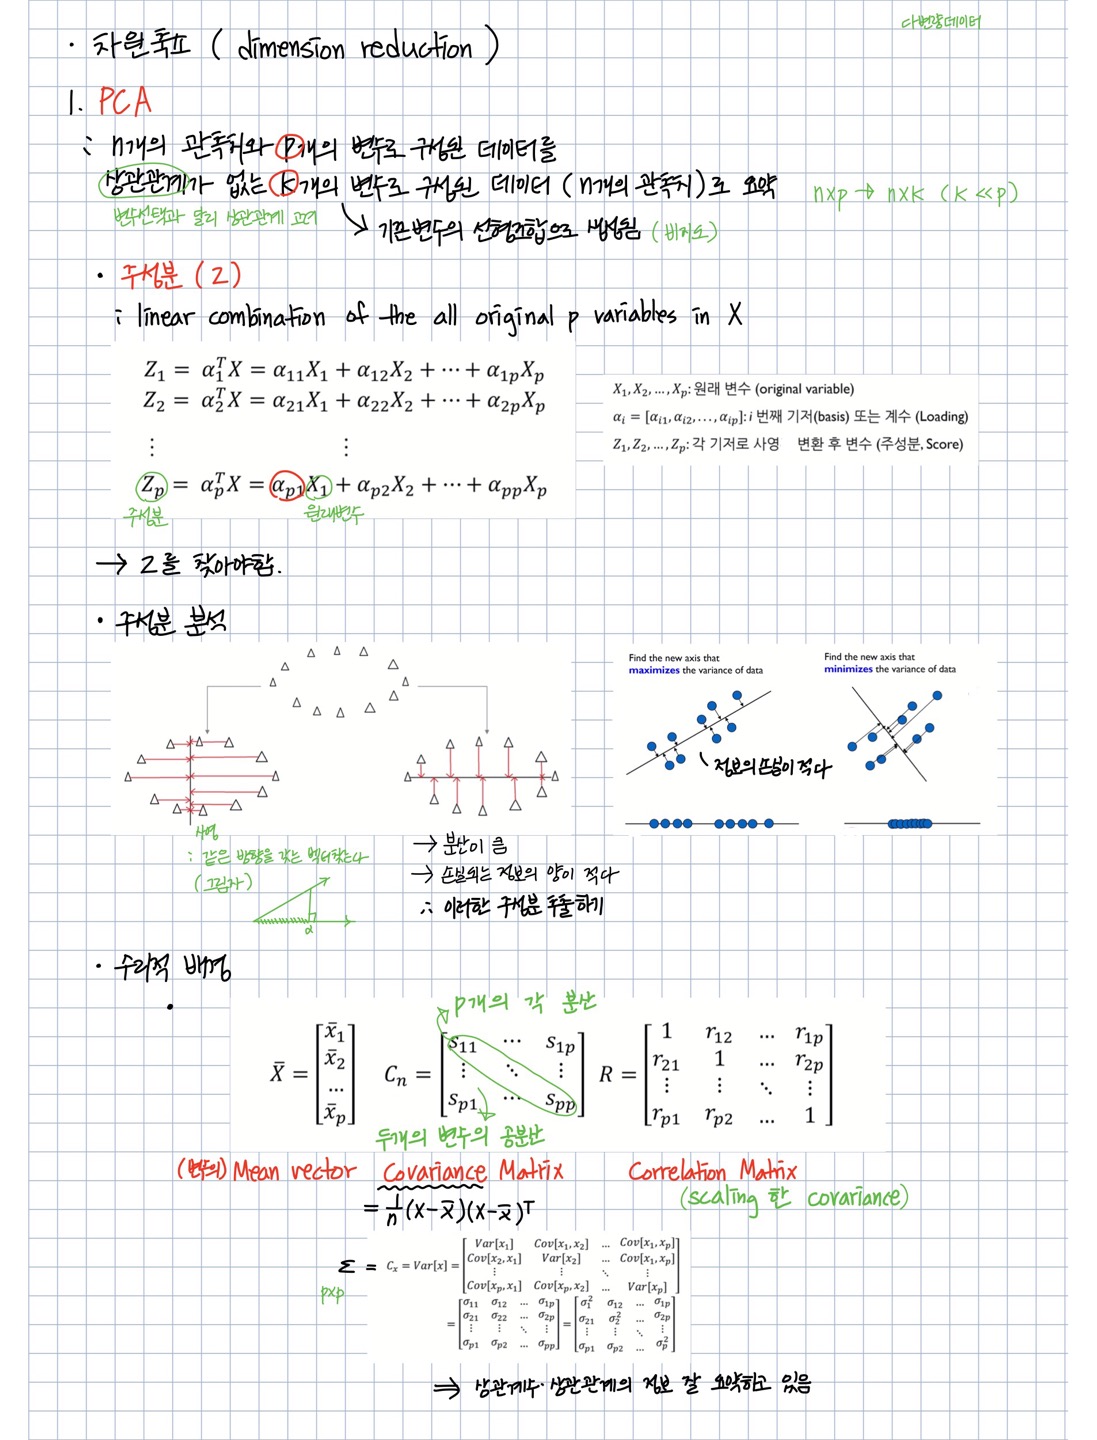 다변량데이터
· 차원축소 ( dimension reduction )
1. PCA
: n개의 관측치와 p개의 변수로 구성된 데이터를
상관관계가 없는 k개의 변수로 구성된 데이터 (n개의 관측치)로 요약
n×p → n×k (k ≪ p)
변수선택과 달리 상관관계 고려
↘ 기존변수의 선형조합으로 생성됨 (비지도)
· 주성분 (Z)
: linear combination of the all original p variables in X
Z₁ = α₁ᵀX = α₁₁X₁ + α₁₂X₂ + ⋯ + α₁ₚXₚ
Z₂ = α₂ᵀX = α₂₁X₁ + α₂₂X₂ + ⋯ + α₂ₚXₚ
⋮ ⋮
Zₚ = αₚᵀX = αₚ₁X₁ + αₚ₂X₂ + ⋯ + αₚₚXₚ
주성분 원래변수
X₁, X₂, ..., Xₚ: 원래 변수 (original variable)
αᵢ = [αᵢ₁, αᵢ₂, ..., αᵢₚ]: i 번째 기저(basis) 또는 계수 (Loading)
Z₁, Z₂, ..., Zₚ: 각 기저로 사영 변환 후 변수 (주성분, Score)
→ Z를 찾아야함.
· 주성분 분석
Find the new axis that
maximizes the variance of data
Find the new axis that
minimizes the variance of data
정보의 손실이 적다
사영
: 같은 방향을 갖는 벡터찾는다
(그림자)
α
→ 분산이 큼
→ 손실되는 정보의 양이 적다
∴ 이러한 주성분 추출하기
· 수리적 배경
·
p개의 각 분산
X̄ = [x̄₁ x̄₂ ... x̄ₚ]
Cₙ = [s₁₁ ⋯ s₁ₚ
⋮ ⋱ ⋮
sₚ₁ ⋯ sₚₚ]
R = [1 r₁₂ ... r₁ₚ
r₂₁ 1 ... r₂ₚ
⋮ ⋮ ⋱ ⋮
rₚ₁ rₚ₂ ... 1]
두개의 변수의 공분산
(변수의) Mean vector Covariance Matrix Correlation Matrix
= 1/n (x-x̄)(x-x̄)ᵀ
(scaling 한 covariance)
Σ = Cₓ = Var[x] = [Var[x₁] Cov[x₁,x₂] ... Cov[x₁,xₚ]
Cov[x₂,x₁] Var[x₂] ... Cov[x₁,xₚ]
⋮ ⋮ ⋱ ⋮
Cov[xₚ,x₁] Cov[xₚ,x₂] ... Var[xₚ]]
p×p
= [σ₁₁ σ₁₂ ... σ₁ₚ
σ₂₁ σ₂₂ ... σ₂ₚ
⋮ ⋮ ⋱ ⋮
σₚ₁ σₚ₂ ... σₚₚ]
= [σ₁² σ₁₂ ... σ₁ₚ
σ₂₁ σ₂² ... σ₂ₚ
⋮ ⋮ ⋱ ⋮
σₚ₁ σₚ₂ ... σₚ²]
⇒ 상관계수·상관관계의 정보 잘 요약하고 있음